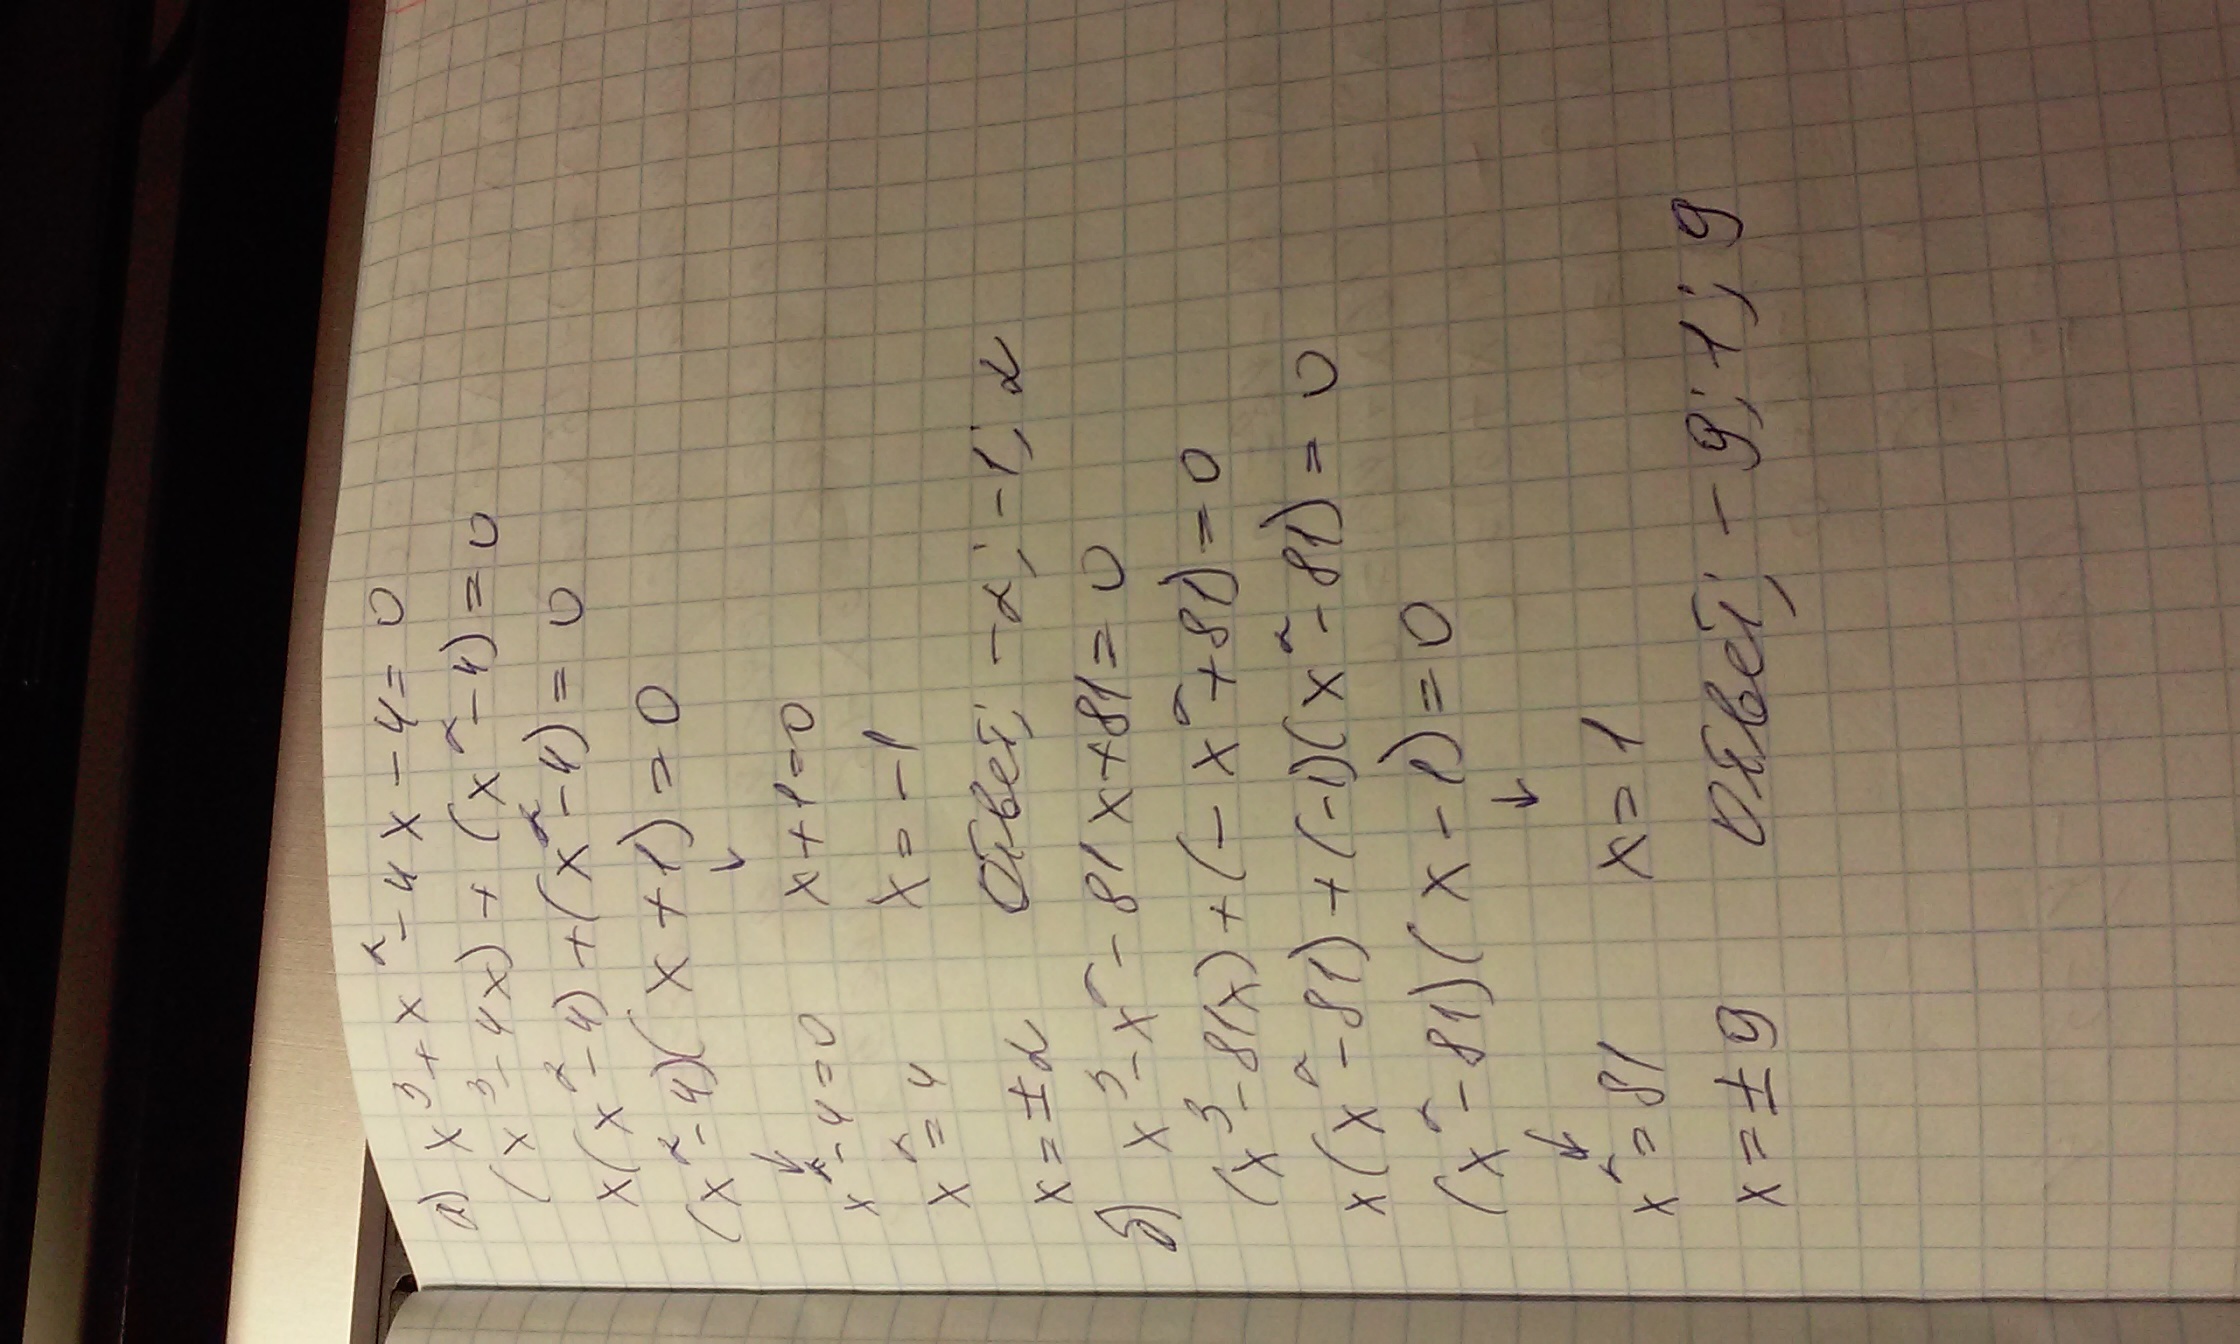 а) x³ + x² - 4x - 4 = 0
(x³ - 4x) + (x² - 4) = 0
x(x² - 4) + (x² - 4) = 0
(x² - 4)(x + 1) = 0
↓ ↓
x² - 4 = 0 x + 1 = 0
x² = 4 x = -1
x = ±2 Ответ; -2; -1; 2
б) x³ - x² - 81x + 81 = 0
(x³ - 81x) + (-x² + 81) = 0
x(x² - 81) + (-1)(x² - 81) = 0
(x² - 81)(x - 1) = 0
↓ ↓
x² = 81 x = 1
x = ±9 Ответ; -9; 1; 9